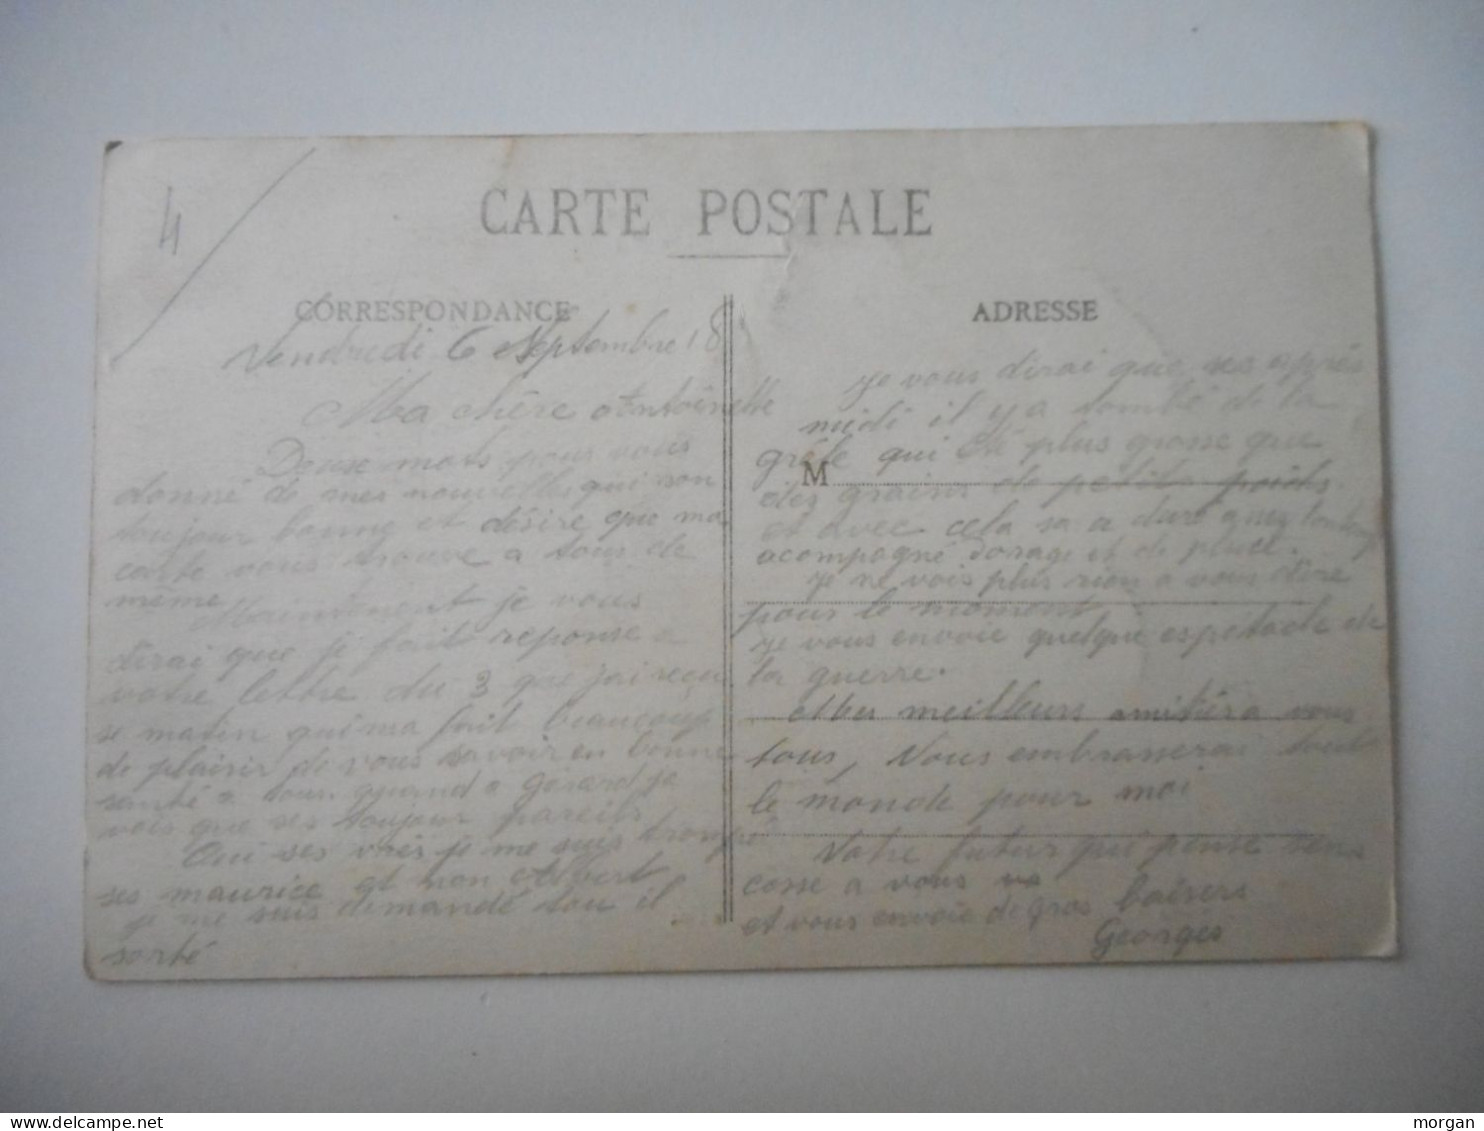 4
CARTE POSTALE
CORRESPONDANCE
Vendredi 6 Septembre 18
Ma chère Antoinette
Deux mots pour vous
donné de mes nouvelles qui son
toujour bonne et désire que ma
carte vous trouve a tous de
même
Maintenent je vous
dirai que je fait reponse a
votre lettre du 3 que j'ai reçu
se matin qui ma fait beaucoup
de plaisir de vous savoir en bonne
santé a tous quand a Gérard je
vois que ses toujour pareils
Oui ses vrais je me suis trompé
ses maurice et non Albert
je me suis demandé d'ou il
sorté
ADRESSE
M
je vous dirai que ses après
midi il y a tombé de la
gréle qui été plus grosse que
des grains de petits poids
et avec cela sa a duré
acompagné d'orage et de pluie.
Je ne vois plus rien a vous dire
pour le moment
je vous envoie quelque espectacle de
la guerre.
Mes meilleurs amitiés a vous
tous, Vous embrasserai tout
le monde pour moi
Votre futur qui pense sens
cesse a vous
et vous envoie de gros baisers
Georges
morgan